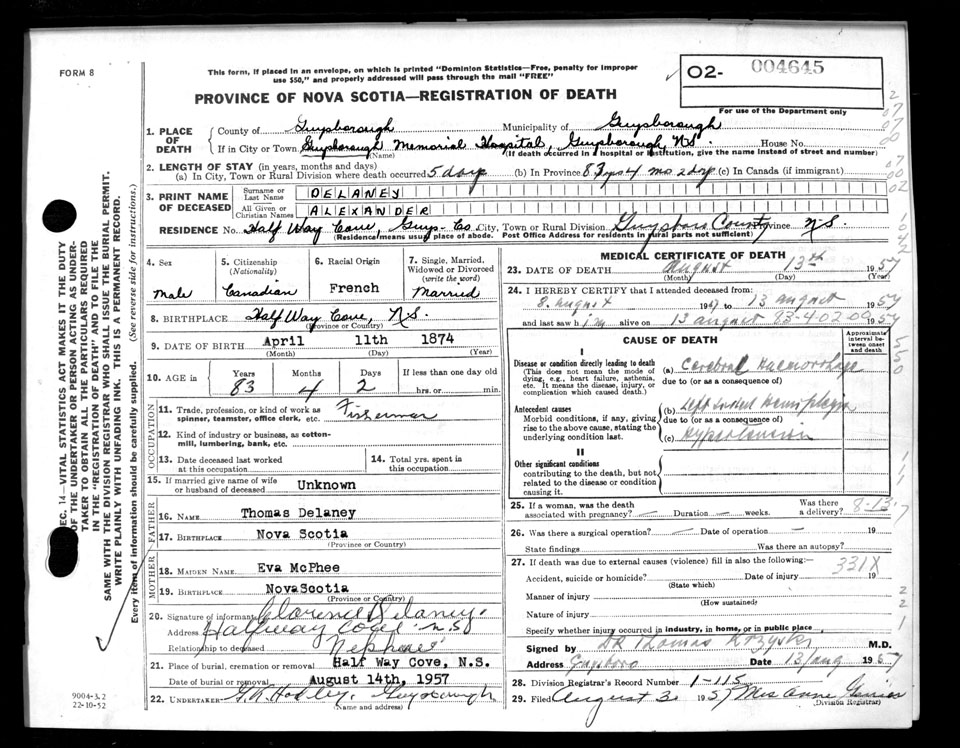 FORM 8
This form, if placed in an envelope, on which is printed "Dominion Statistics—Free, penalty for improper
use $50," and properly addressed will pass through the mail "FREE"
02- 004645
For use of the Department only
PROVINCE OF NOVA SCOTIA—REGISTRATION OF DEATH
1. PLACE OF DEATH
County of Guysborough Municipality of Guysborough
If in City or Town Guysborough Memorial Hospital, Guysborough, N.S. House No.
(Name) (If death occurred in a hospital or institution, give the name instead of street and number)
2. LENGTH OF STAY (in years, months and days)
(a) In City, Town or Rural Division where death occurred 5 days (b) In Province 83 yrs 4 mos 2 dys (c) In Canada (if immigrant)
3. PRINT NAME OF DECEASED
Surname or Last Name DELANEY
All Given or Christian Names ALEXANDER
RESIDENCE No. Half Way Cove, Guys. Co. City, Town or Rural Division. Guysboro County Province N.S.
(Residence means usual place of abode. Post Office Address for residents in rural parts not sufficient)
4. Sex
Male
5. Citizenship
(Nationality)
Canadian
6. Racial Origin
French
7. Single, Married, Widowed or Divorced
(write the word)
Married
8. BIRTHPLACE Half Way Cove, N.S.
(Province or Country)
9. DATE OF BIRTH April 11th 1874
(Month) (Day) (Year)
10. AGE in
Years Months Days If less than one day old
83 4 2 hrs. or min.
OCCUPATION
11. Trade, profession, or kind of work as spinner, teamster, office clerk, etc. Fisherman
12. Kind of industry or business, as cotton-mill, lumbering, bank, etc.
13. Date deceased last worked at this occupation
14. Total yrs. spent in this occupation
15. If married give name of wife or husband of deceased Unknown
FATHER
16. NAME Thomas Delaney
17. BIRTHPLACE Nova Scotia
(Province or Country)
MOTHER
18. MAIDEN NAME Eva McPhee
19. BIRTHPLACE NovaScotia
(Province or Country)
20. Signature of informant Clarence Delaney
Address Halfway Cove N.S
Relationship to deceased Nephew
21. Place of burial, cremation or removal Half Way Cove, N.S.
Date of burial or removal August 14th, 1957
22. UNDERTAKER Guysborough
(Name and address)
MEDICAL CERTIFICATE OF DEATH
23. DATE OF DEATH August 13th 1957
(Month) (Day) (Year)
24. I HEREBY CERTIFY that I attended deceased from:
8. August 1957 to 13 August 1957
and last saw him alive on 13 August 1957
83-4.02.00
CAUSE OF DEATH
Approximate interval between onset and death
I
Disease or condition directly leading to death
(This does not mean the mode of dying, e.g., heart failure, asthenia, etc. It means the disease, injury, or complication which caused death.)
(a) Cerebral Haemorrhage
due to (or as a consequence of)
Antecedent causes
Morbid conditions, if any, giving rise to the above cause, stating the underlying condition last.
(b) Left Hemiplegia
due to (or as a consequence of)
(c) Hypertension
II
Other significant conditions
contributing to the death, but not related to the disease or condition causing it.
25. If a woman, was the death associated with pregnancy? — Duration — weeks. Was there a delivery?
8-13-
26. Was there a surgical operation? — Date of operation — 19
State findings Was there an autopsy?
27. If death was due to external causes (violence) fill in also the following:—
331X
Accident, suicide or homicide? Date of injury 19
(State which)
Manner of injury
(How sustained)
Nature of injury
Specify whether injury occurred in industry, in home, or in public place
Signed by Dr Thomas Krzyski M.D.
Address Guysboro Date 13/Aug 1957
28. Division Registrar's Record Number 1-115
29. Filed August 3 1957 Mrs Anne
(Division Registrar)
9004-3.2
22-10-52
SEC. 14—VITAL STATISTICS ACT MAKES IT THE DUTY
OF THE UNDERTAKER OR PERSON ACTING AS UNDER-
TAKER TO OBTAIN ALL THE PARTICULARS REQUIRED
IN THE "REGISTRATION OF DEATH" AND TO FILE THE
SAME WITH THE DIVISION REGISTRAR WHO SHALL ISSUE THE BURIAL PERMIT.
WRITE PLAINLY WITH UNFADING INK. THIS IS A PERMANENT RECORD.
Every item of information should be carefully supplied. (See reverse side for instructions.)